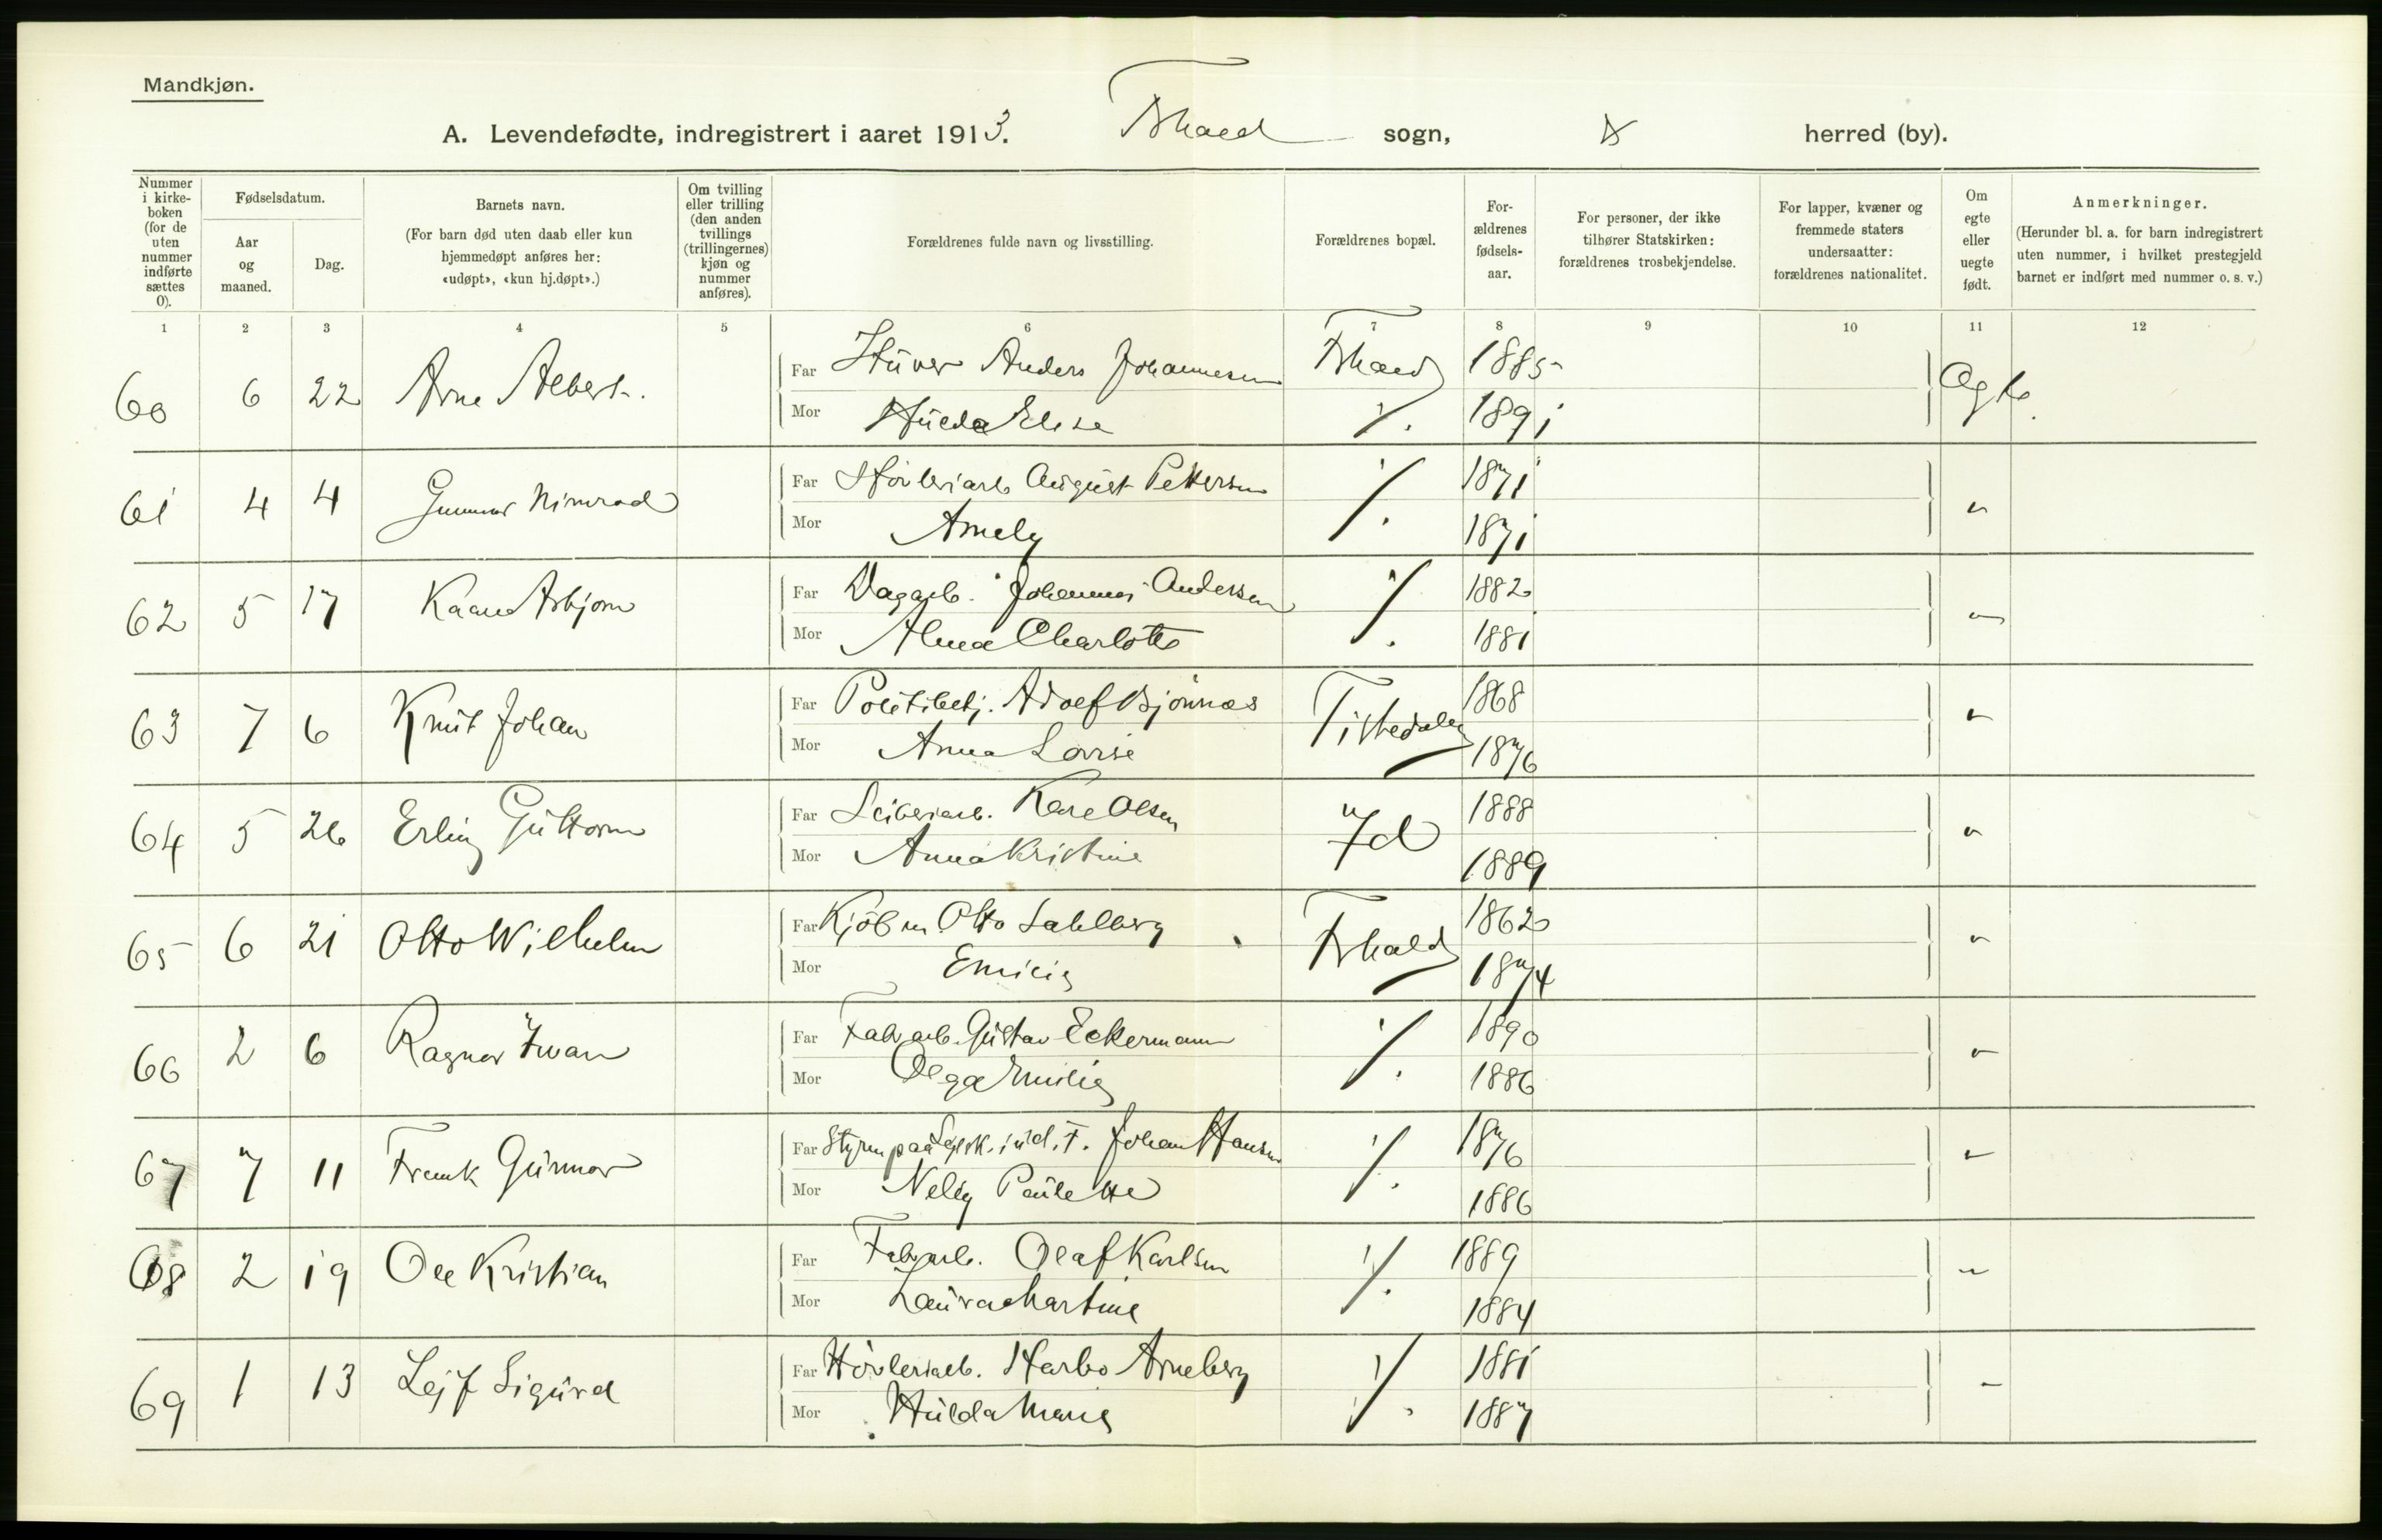 Mandkjøn.
A. Levendefødte, indregistrert i aaret 1913. Frhald sogn, herred (by).
Nummer i kirke-boken (for de uten nummer indførte sættes 0).
Fødselsdatum.
Aar og maaned.
Dag.
Barnets navn.
(For barn død uten daab eller kun hjemmedøpt anføres her: «udøpt», «kun hj.døpt».)
Om tvilling eller trilling (den anden tvillings (trillingernes) kjøn og nummer anføres).
Forældrenes fulde navn og livsstilling.
Forældrenes bopæl.
For-ældrenes fødsels-aar.
For personer, der ikke tilhører Statskirken: forældrenes trosbekjendelse.
For lapper, kvæner og fremmede staters undersaatter: forældrenes nationalitet.
Om egte eller uegte født.
Anmerkninger.
(Herunder bl. a. for barn indregistrert uten nummer, i hvilket prestegjeld barnet er indført med nummer o. s. v.)
1 2 3 4 5 6 7 8 9 10 11 12
60 6 22 Arne Albert. Far Stuver Anders Johannesen Frhald 1885 Egte
Mor Hulda Elise 1891
61 4 4 Gunnar Nimrod Far Høvleriarb August Pettersen 1871 "
Mor Amely 1871
62 5 17 Kaare Asbjørn Far Dagarb. Johannes Andersen 1882 "
Mor Alma Charlotte 1881
63 7 6 Knut Johan Far Politibetj. Adolf Bjønnes Tistedalen 1868 "
Mor Anna Lovise 1876
64 5 26 Erling Guttorm Far Sliberiarb. Kare Olsen Id 1888 "
Mor Anna Kristine 1889
65 6 21 Otto Wilhelm Far Kjøbm. Otto Sahlberg Frhald 1862 "
Mor Emilie 1874
66 2 6 Ragnar Iwan Far Fabarb. Gustav Eckermann 1890 "
Mor Olga Emilie 1886
67 7 11 Frank Gunnar Far Styrm paa Johan Hansen 1876 "
Mor Nelly Paulette 1886
68 2 19 Ole Kristian Far Fabarb. Olaf Karlsen 1889 "
Mor Laura Martine 1884
69 1 13 Lejf Sigurd Far Høvleriarb. Harbo Arneberg 1881 "
Mor Hulda Marie 1887